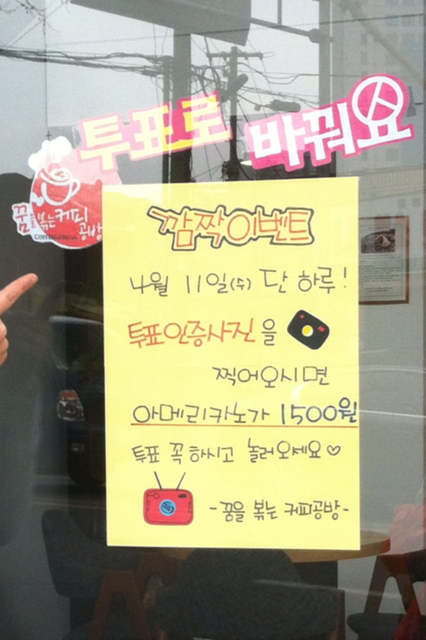 투표로 바꿔요
꿈을 볶는 커피
공방
깜짝이벤트
4월 11일(수) 단 하루!
투표인증사진을
찍어오시면
아메리카노가 1500원
투표 꼭 하시고 놀러오세요♡
- 꿈을 볶는 커피공방 -